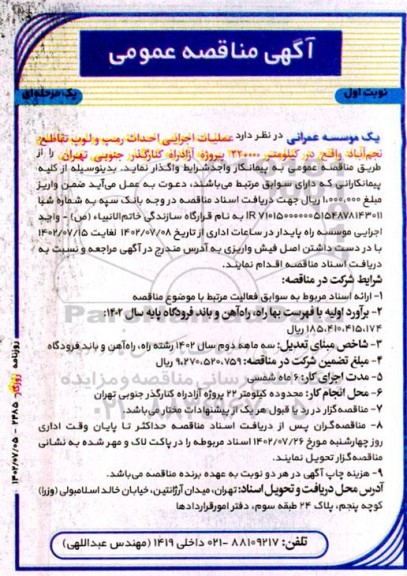 آگهی مناقصه عمومی
نوبت اول
یک مرحله‌ای
یک موسسه عمرانی در نظر دارد عملیات اجرایی احداث رمپ و لوپ تقاطع
نجم‌آباد واقع در کیلومتر ۲۲+۰۰۰ پروژه آزادراه کنارگذر جنوبی تهران را از
طریق مناقصه عمومی به پیمانکار واجدشرایط واگذار نماید. بدینوسیله از کلیه
پیمانکارانی که دارای سوابق مرتبط می‌باشند، دعوت به عمل می‌آید ضمن واریز
مبلغ ۱,۰۰۰,۰۰۰ ریال جهت دریافت اسناد مناقصه در وجه بانک سپه به شماره شبا
به نام قرارگاه سازندگی خاتم الانبیاء (ص) - واحد
اجرایی موسسه راه پایدار در ساعات اداری از تاریخ ۱۴۰۲/۰۷/۰۸ لغایت ۱۴۰۲/۰۷/۱۵
با در دست داشتن اصل فیش واریزی به آدرس مندرج در آگهی مراجعه و نسبت به
دریافت اسناد مناقصه اقدام نمایند.
شرایط شرکت در مناقصه:
۱- ارائه اسناد مربوط به سوابق فعالیت مرتبط با موضوع مناقصه
۲- برآورد اولیه با فهرست بها راه، راه‌آهن و باند فرودگاه پایه سال ۱۴۰۲:
۱۸۵.۴۱۰.۴۱۵.۱۷۴ ریال
۳- شاخص مبنای تعدیل: سه ماهه دوم سال ۱۴۰۲ رشته راه، راه‌آهن و باند فرودگاه
۴- مبلغ تضمین شرکت در مناقصه: ۹.۲۷۰.۵۲۰.۷۵۹ ریال
۵- مدت اجرای کار: ۶ ماه شمسی
۶- محل انجام کار: محدوده کیلومتر ۲۲ پروژه آزادراه کنارگذر جنوبی تهران
۷- مناقصه‌گزار در رد یا قبول هر یک از پیشنهادات مختار می‌باشد.
۸- مناقصه‌گران پس از دریافت اسناد مناقصه حداکثر تا پایان وقت اداری
روز چهارشنبه مورخ ۱۴۰۲/۰۷/۲۶ اسناد مربوطه را در پاکت لاک و مهر شده به نشانی
مناقصه‌گزار تحویل نمایند.
۹- هزینه چاپ آگهی در هر دو نوبت به عهده برنده مناقصه می‌باشد.
آدرس محل دریافت و تحویل اسناد: تهران، میدان آرژانتین، خیابان خالد اسلامبولی (وزرا)
کوچه پنجم، پلاک ۲۴ طبقه سوم، دفتر امور قراردادها
تلفن: ۸۸۱۰۹۲۱۷-۰۲۱ داخلی ۱۴۱۹ (مهندس عبداللهی)
روزنامه روزگار - ۲۴۸۵ - ۱۴۰۲/۰۷/۰۵